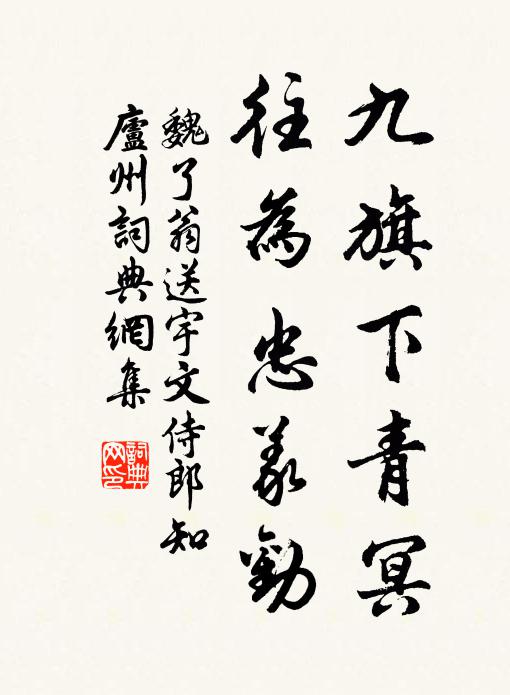 九旗下青冥
往為忠義勸
魏了翁送宇文侍郎知
廬州詞典網集
詞典網印